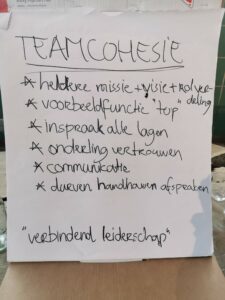 TEAMCOHESIE
* heldere missie + visie + rolver-
deling
* voorbeeldfunctie "top"
* inspraak alle lagen
* onderling vertrouwen
* communicatie
* durven handhaven afspraken
"verbindend leiderschap"